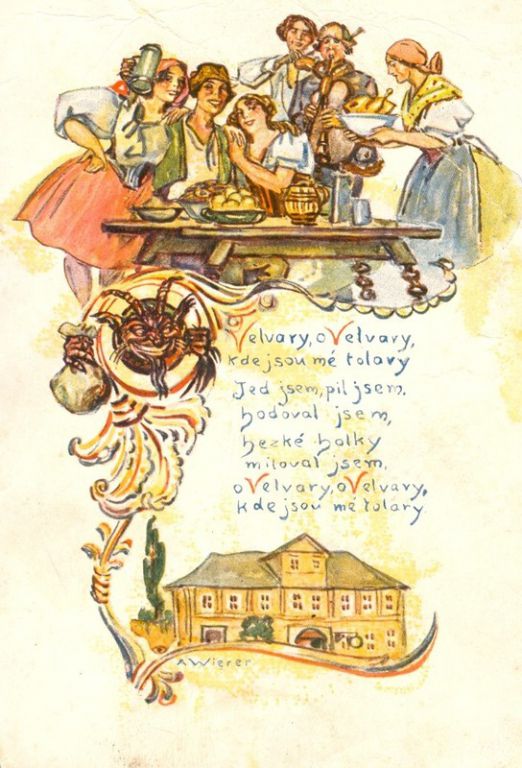 Velvary, o Velvary,
kde jsou mé tolary
Jed jsem, pil jsem,
hodoval jsem,
hezké holky
miloval jsem,
o Velvary, o Velvary,
kde jsou mé tolary
A Wierer